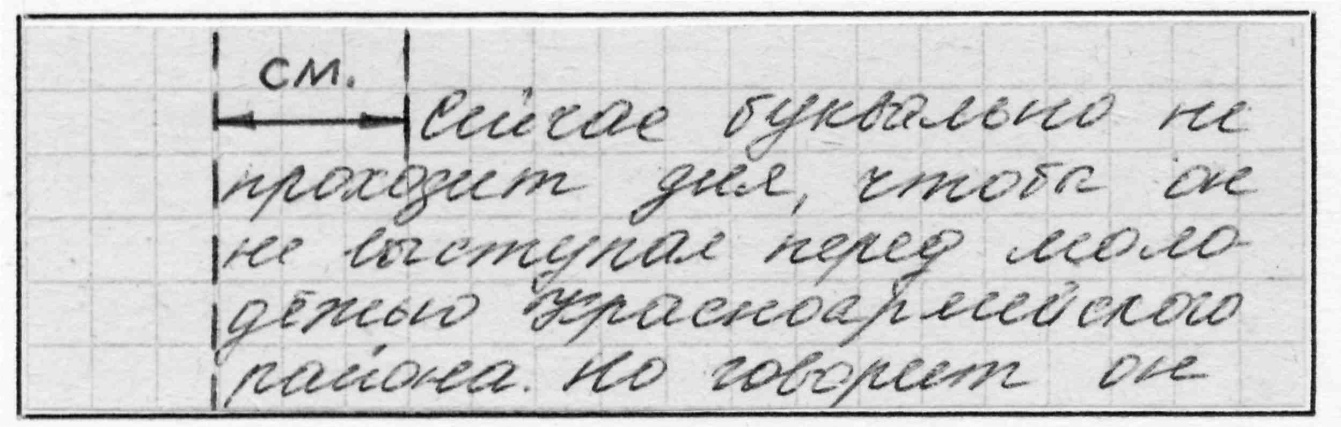 см.
Сейчас буквально не
проходит дня, чтобы он
не выступал перед моло-
дёжью Красноармейского
района. Но говорит он